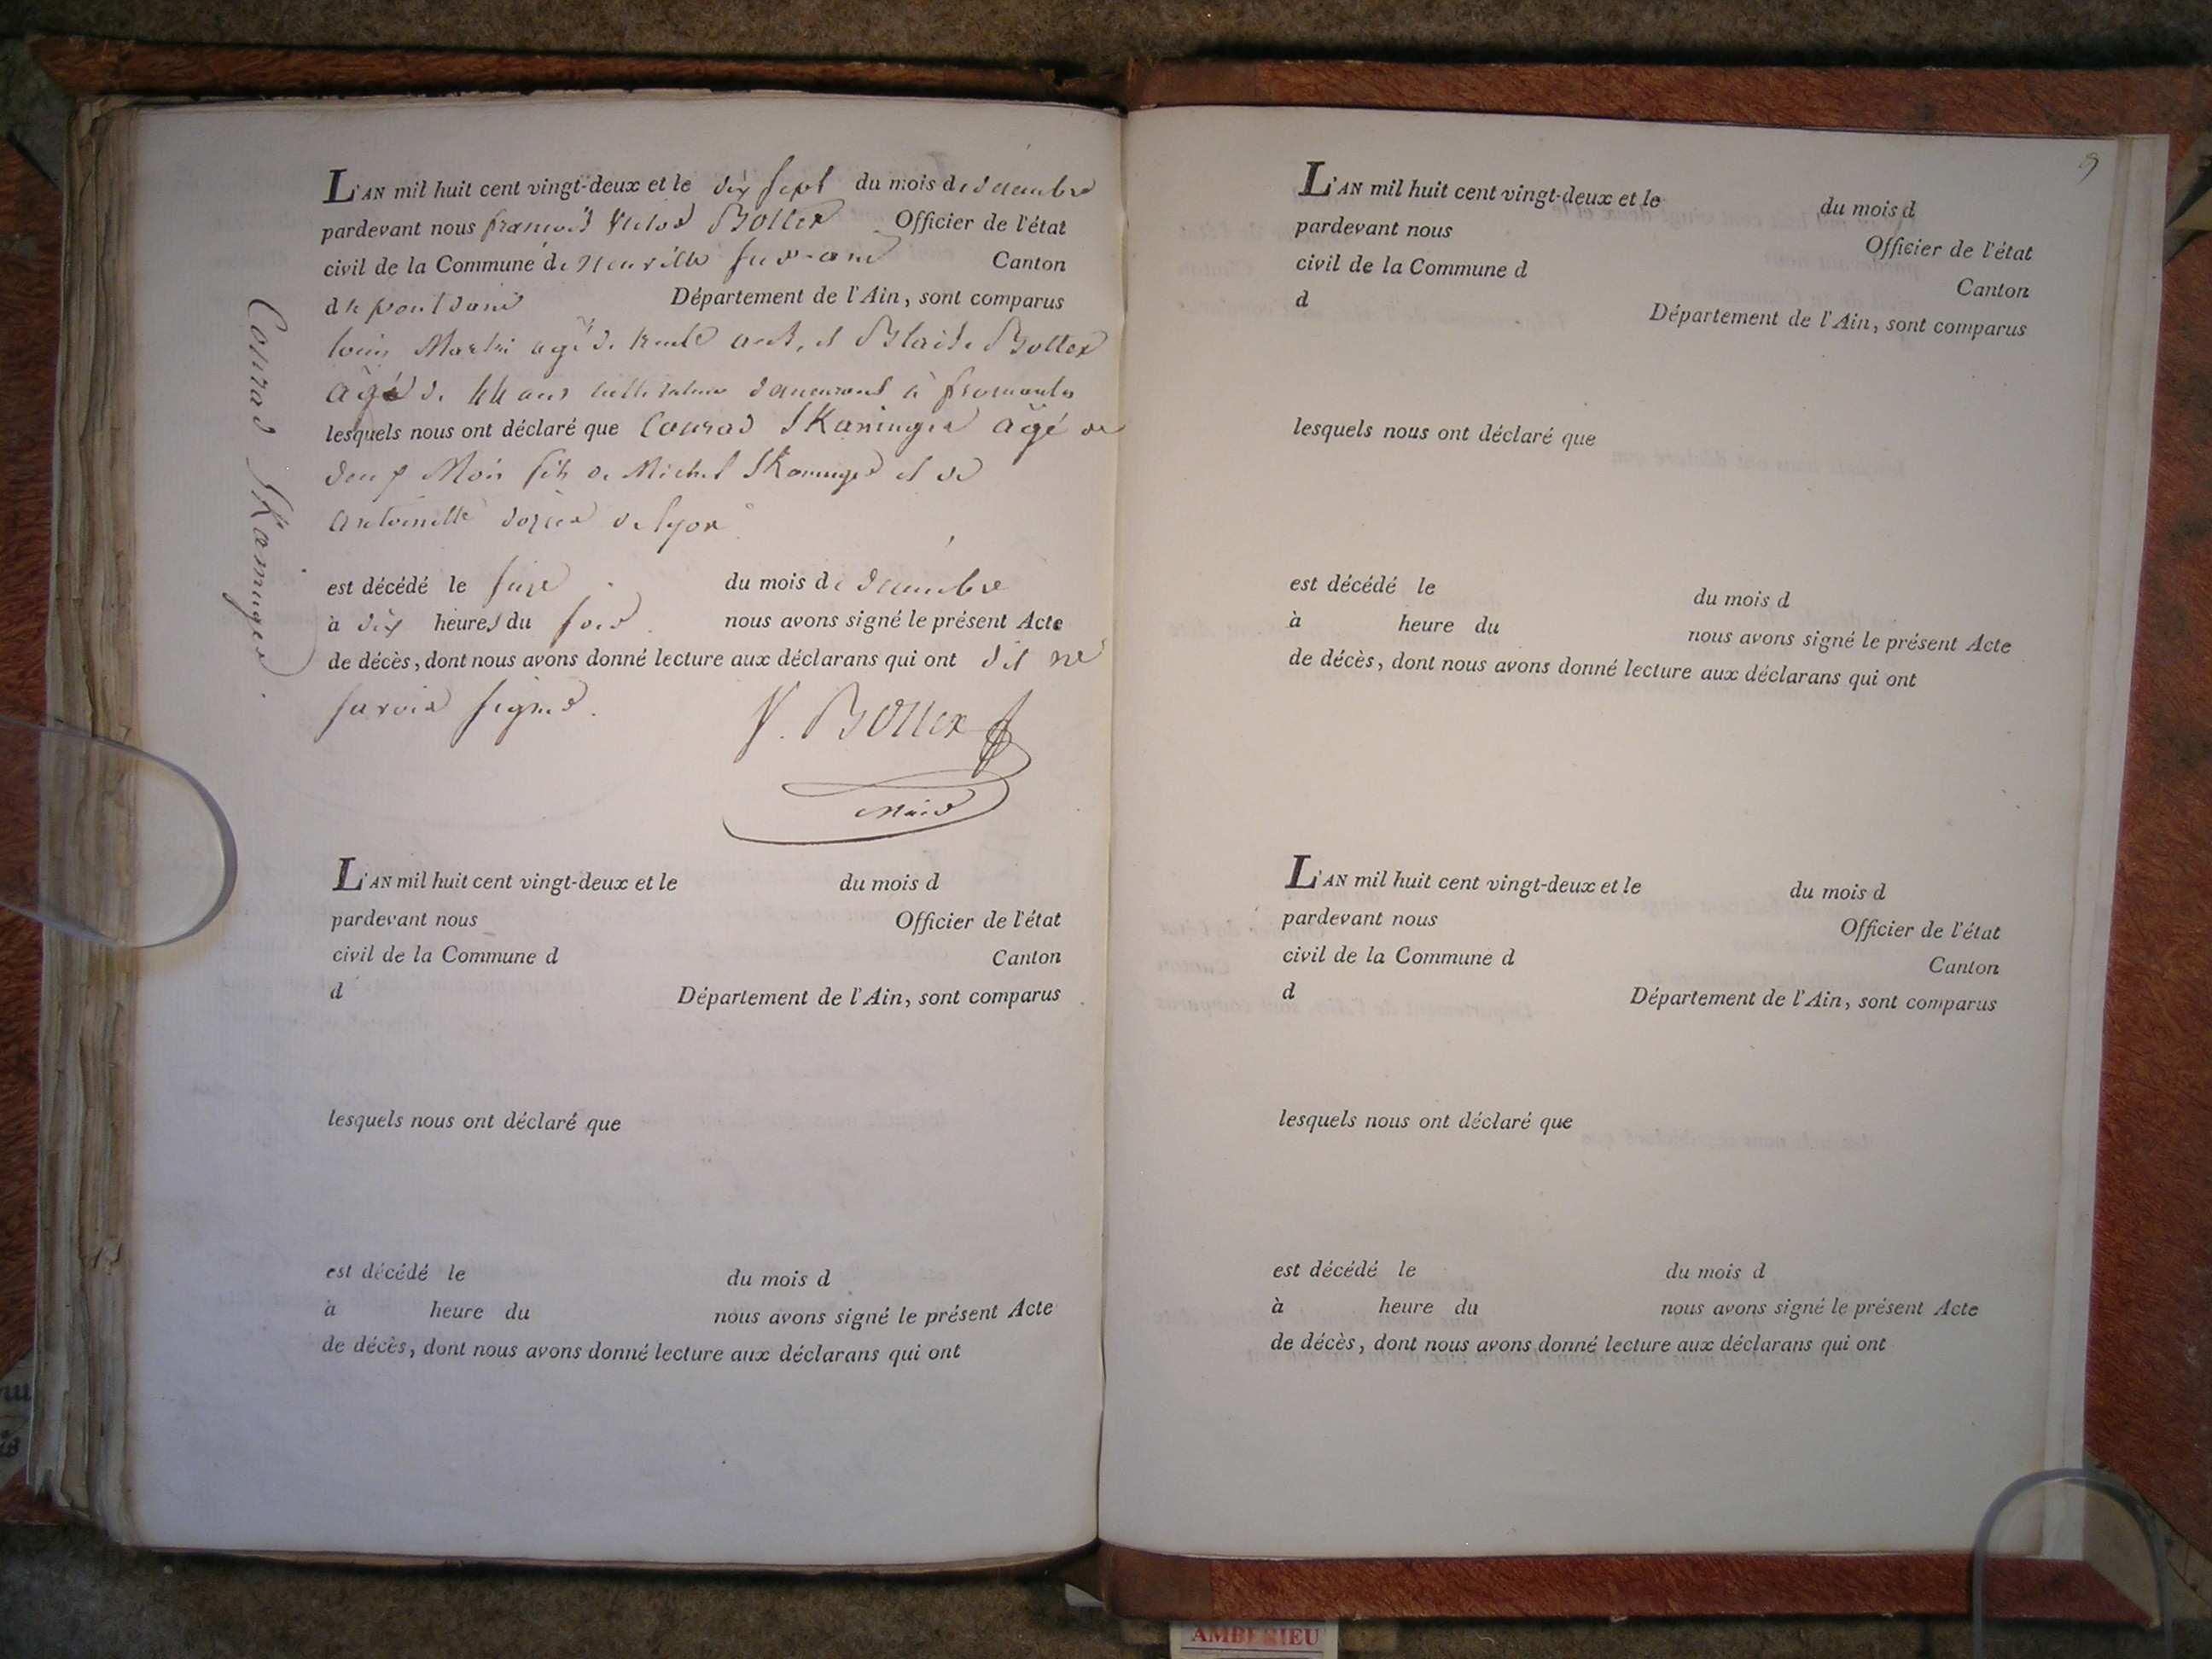 L'AN mil huit cent vingt-deux et le dix sept du mois de decembre
pardevant nous françois Victor Bottex Officier de l'état
civil de la Commune de Neuville sur-ain Canton
de pont dain Département de l'Ain, sont comparus
louis agé de trente ans, et Blaise Bottex
âgé de 44 ans demeurant à fromentes
lesquels nous ont déclaré que Conrad Skaninger âgé de
deux Mois fils de Michel Skaninger et de
antoinette de lyon
est décédé le seize du mois de decembre
à dix heures du soir nous avons signé le présent Acte
de décès, dont nous avons donné lecture aux déclarans qui ont dit ne
savoir signer.
V. Bottex
Maire
Conrad Skaninger.
L'AN mil huit cent vingt-deux et le du mois d
pardevant nous Officier de l'état
civil de la Commune d Canton
d Département de l'Ain, sont comparus
lesquels nous ont déclaré que
est décédé le du mois d
à heure du nous avons signé le présent Acte
de décès, dont nous avons donné lecture aux déclarans qui ont
9
L'AN mil huit cent vingt-deux et le du mois d
pardevant nous Officier de l'état
civil de la Commune d Canton
d Département de l'Ain, sont comparus
lesquels nous ont déclaré que
est décédé le du mois d
à heure du nous avons signé le présent Acte
de décès, dont nous avons donné lecture aux déclarans qui ont
L'AN mil huit cent vingt-deux et le du mois d
pardevant nous Officier de l'état
civil de la Commune d Canton
d Département de l'Ain, sont comparus
lesquels nous ont déclaré que
est décédé le du mois d
à heure du nous avons signé le présent Acte
de décès, dont nous avons donné lecture aux déclarans qui ont
AMBERIEU